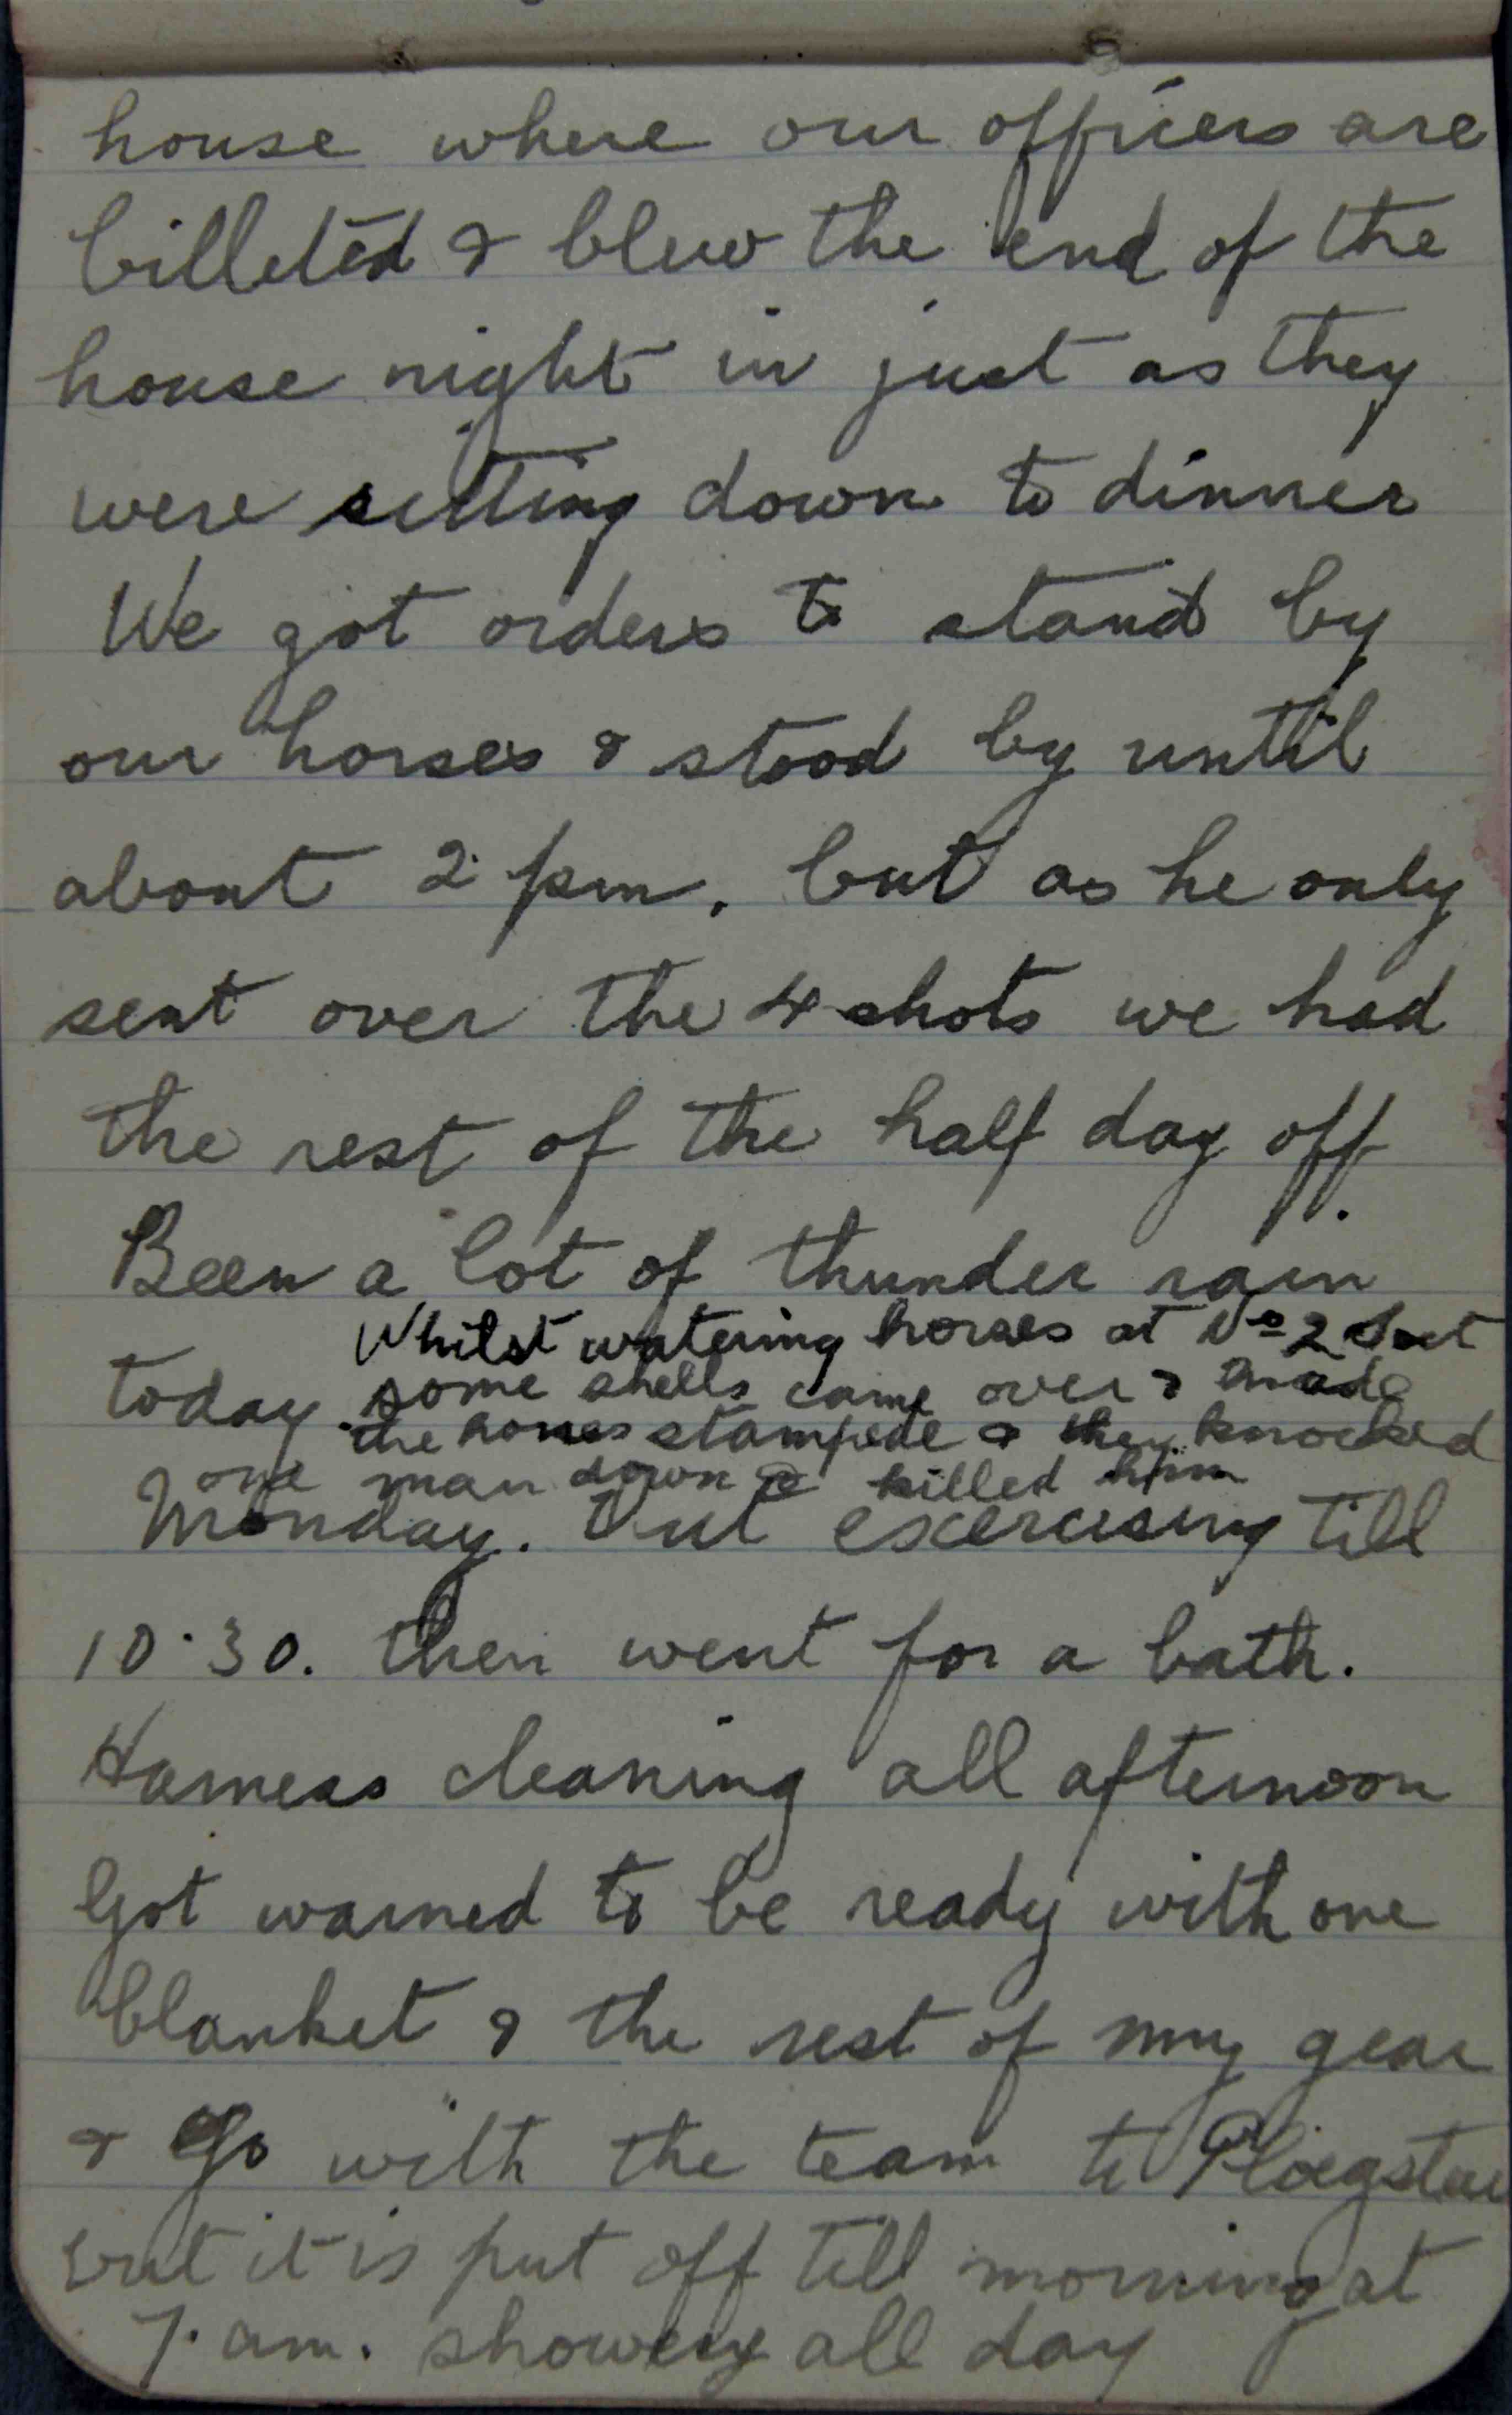 house where our officers are
billeted & blew the end of the
house right in just as they
were sitting down to dinner
We got orders to stand by
our horses & stood by until
about 2 pm. but as he only
sent over the 4 shots we had
the rest of the half day off.
Been a lot of thunder rain
Whilst watering horses at No 2
today. some shells came over & made
the horses stampede & they knocked
one man down & killed him
Monday. Out exercising till
10.30. then went for a bath.
Harness cleaning all afternoon
Got warned to be ready with one
blanket & the rest of my gear
& go with the team to
but it is put off till morning at
7. am. showery all day